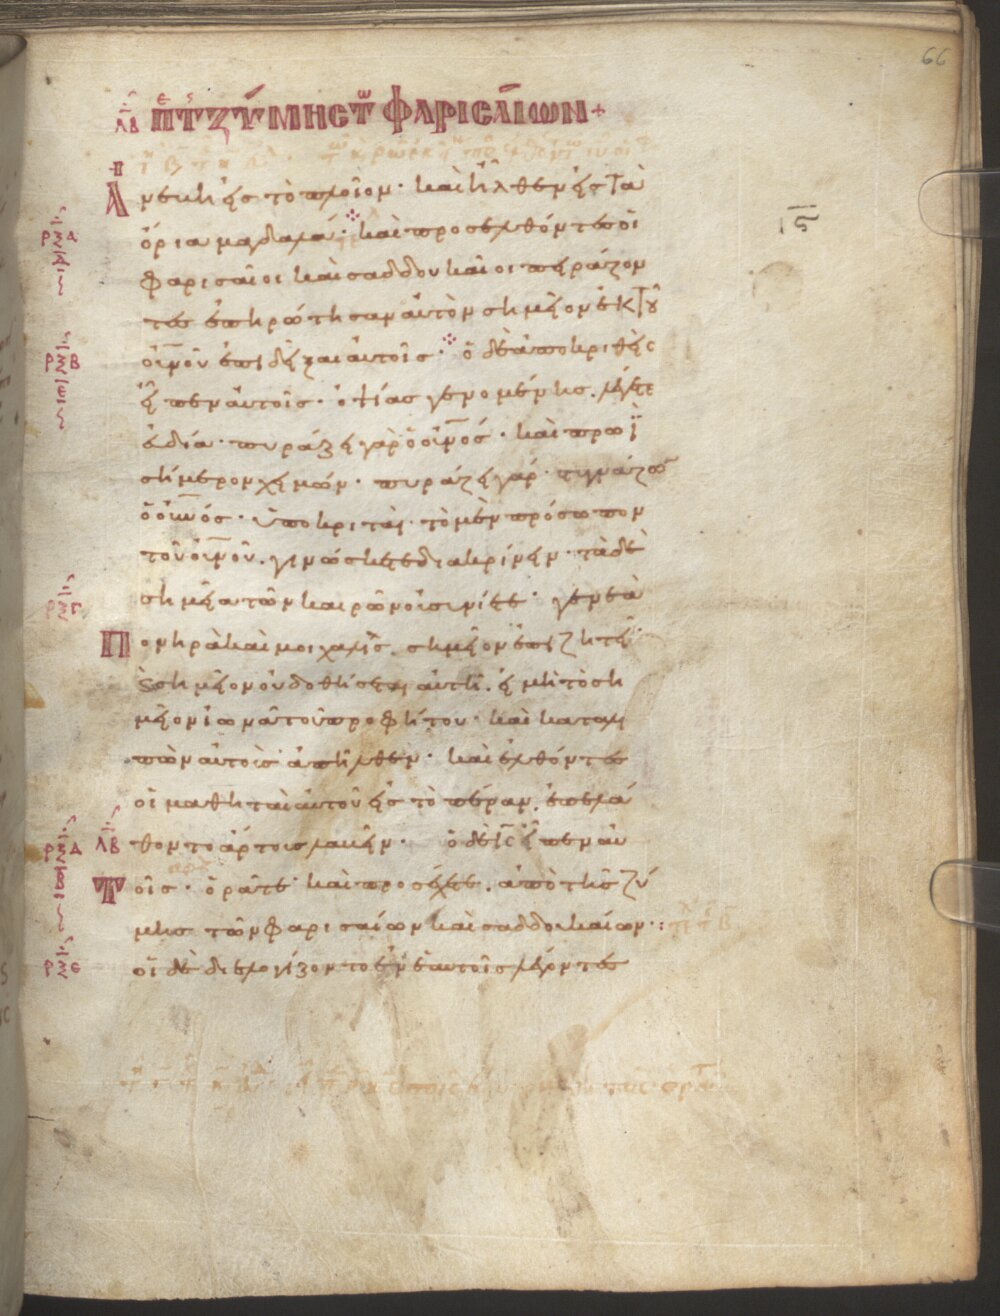 66
ΛΒ ΠΤ ΖΎΜΗC Τ ΦΑΡΙCΑΊΩΝ +
Ἀνέβη εἰς τὸ πλοῖον· καὶ ἦλθεν εἰς τὰ
ὅρια μαγδαλά· καὶ προσελθόντες οἱ
φαρισαῖοι καὶ σαδδουκαῖοι πειράζον
τες ἐπηρώτησαν αὐτὸν σημεῖον ἐκ τοῦ
οὐνοῦ ἐπιδεῖξαι αὐτοῖς· ὁ δὲ ἀποκριθεὶς
εἶπεν αὐτοῖς· ὀψίας γενομένης. λέγετε
εὐδία· πυράζει γὰρ ὁ οὐνός· καὶ πρωῒ
σήμερον χειμών· πυράζει γάρ· στυγνάζων
ὁ οὐνός· ὑποκριταί· τὸ μὲν πρόσωπον
τοῦ οὐνοῦ. γινώσκετε διακρίνειν· τὰ δὲ
σημεῖα τῶν καιρῶν οὐ συνίετε· γενεὰ
Πονηρὰ καὶ μοιχαλὶς. σημεῖον ἐπιζητεῖ·
καὶ σημεῖον οὐ δοθήσεται αὐτῇ. εἰ μὴ τὸ ση
μεῖον ἰωνᾶ τοῦ προφήτου· καὶ καταλι
πὼν αὐτοὺς ἀπῆλθεν· καὶ ἐλθόντες
οἱ μαθηταὶ αὐτοῦ εἰς τὸ πέραν. ἐπελά
ΡΞΔ ΛΒ θοντο ἄρτους λαβεῖν· ὁ δὲ ἰς εἶπεν αὐ
Τοῖς· ὁρᾶτε καὶ προσέχετε. ἀπὸ τῆς ζύ
μης τῶν φαρισαίων καὶ σαδδουκαίων:
ΡΞΕ οἱ δὲ διελογίζοντο ἐν ἑαυτοῖς λέγοντες
ΡΞΑ
ΡΞΒ
ΡΞΓ